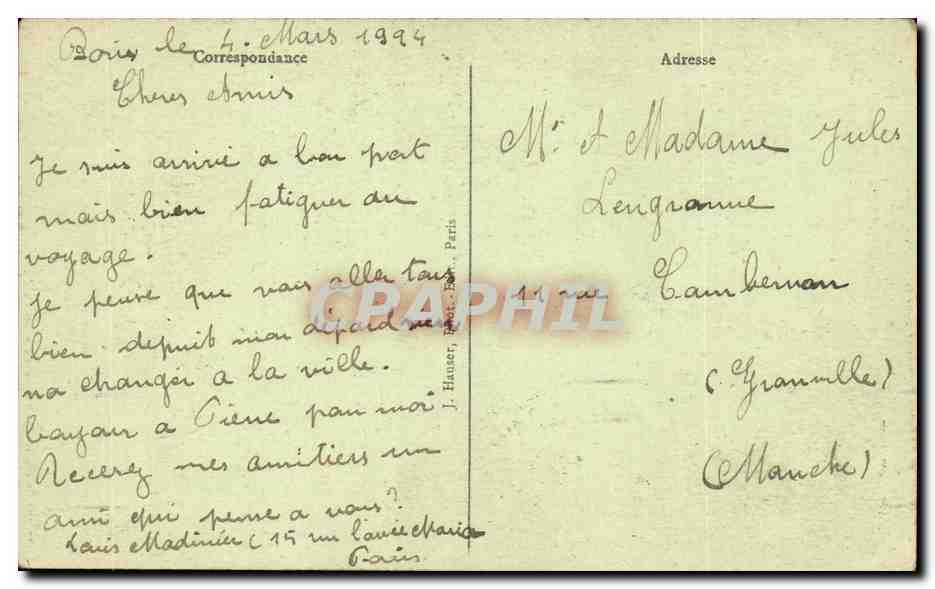 Paris le 4. Mars 1924
Correspondance
Chers Amis
Je suis arrivé a bon port
mais bien fatiguer du
voyage.
Je pense que vous aller tous
bien depuit mon départ rien
na changer a la ville.
a Pierre pour moi
Recevez mes amitiers un
ami qui pense a vous?
Louis (15 rue Maria
Paris
J. Hauser, Phot.-Edit., Paris
Adresse
Mr et Madame Jules
Lengronne
11 rue Cambernon
(Granville)
(Manche)
CPAPHIL